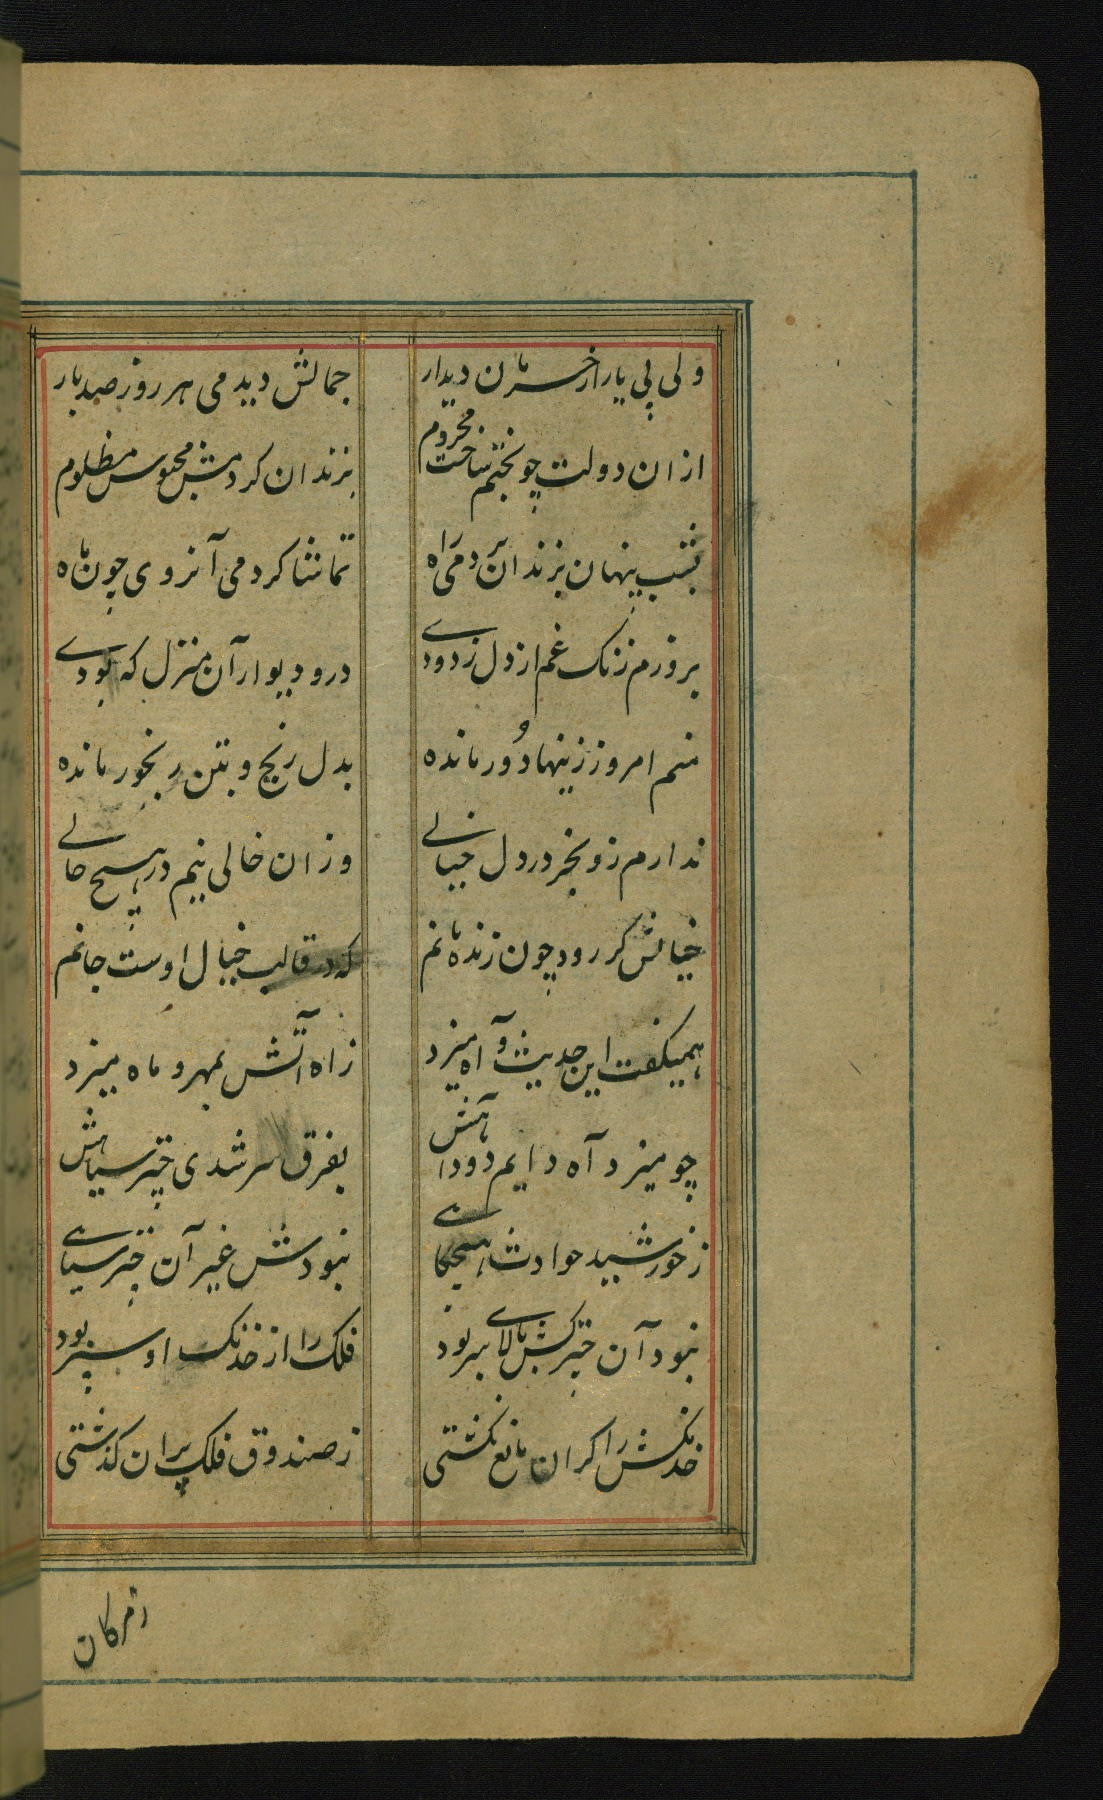 ولی بی یار از خرمان دیدار جمالش دیدمی هر روز صد بار
ازان دولت چو بختم ساخت محروم بزندان کردمش محبوس مظلوم
بشب پنهان بزندان بردمی راه تماشا کردمی آنروی چون ماه
بروزم زنک غم از دل زدودی در و دیوار آن منزل که بودی
منم امروز زینها دور مانده بدل رنج و بتن رنجور مانده
ندارم زو بخبر در دل خیالی وزان خالی نیم در هیچ حالی
خیالش کر رود چون زنده مانم که در قالب خیال اوست جانم
همیکفت این حدیث و آه میزد ز آه آتش بمهر و ماه میزد
چو میزد آه دایم دود آهش بفرق سر شدی چتر سیاهش
ز خورشید حوادث هیچکاهی نبودش غیر آن چتر سیاهی
نبود آن چترکش بالای سر بود فلک را از خدنک او سپر بود
خدنکش را کر ان مانع نکشتی ز صندوق فلک پران کذشتی
زمژکان